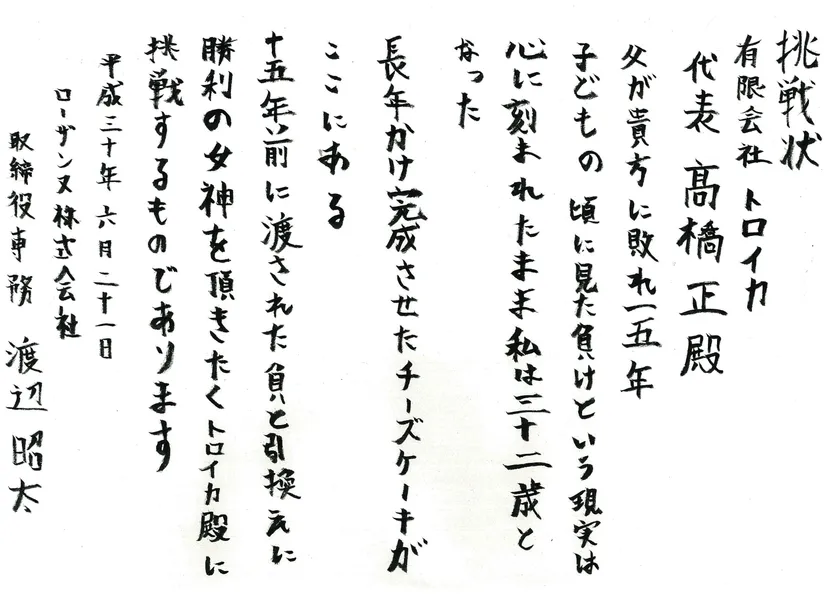 挑戦状
有限会社 トロイカ
代表 高橋 正 殿
父が貴方に敗れ一五年
子どもの頃に見た負けという現実は
心に刻まれたまま私は三十二歳と
なった
長年かけ完成させたチーズケーキが
ここにある
十五年前に渡された負と引換えに
勝利の女神を頂きたくトロイカ殿に
挑戦するものであります
平成三十年六月二十一日
ローザンヌ株式会社
取締役専務 渡辺 昭太